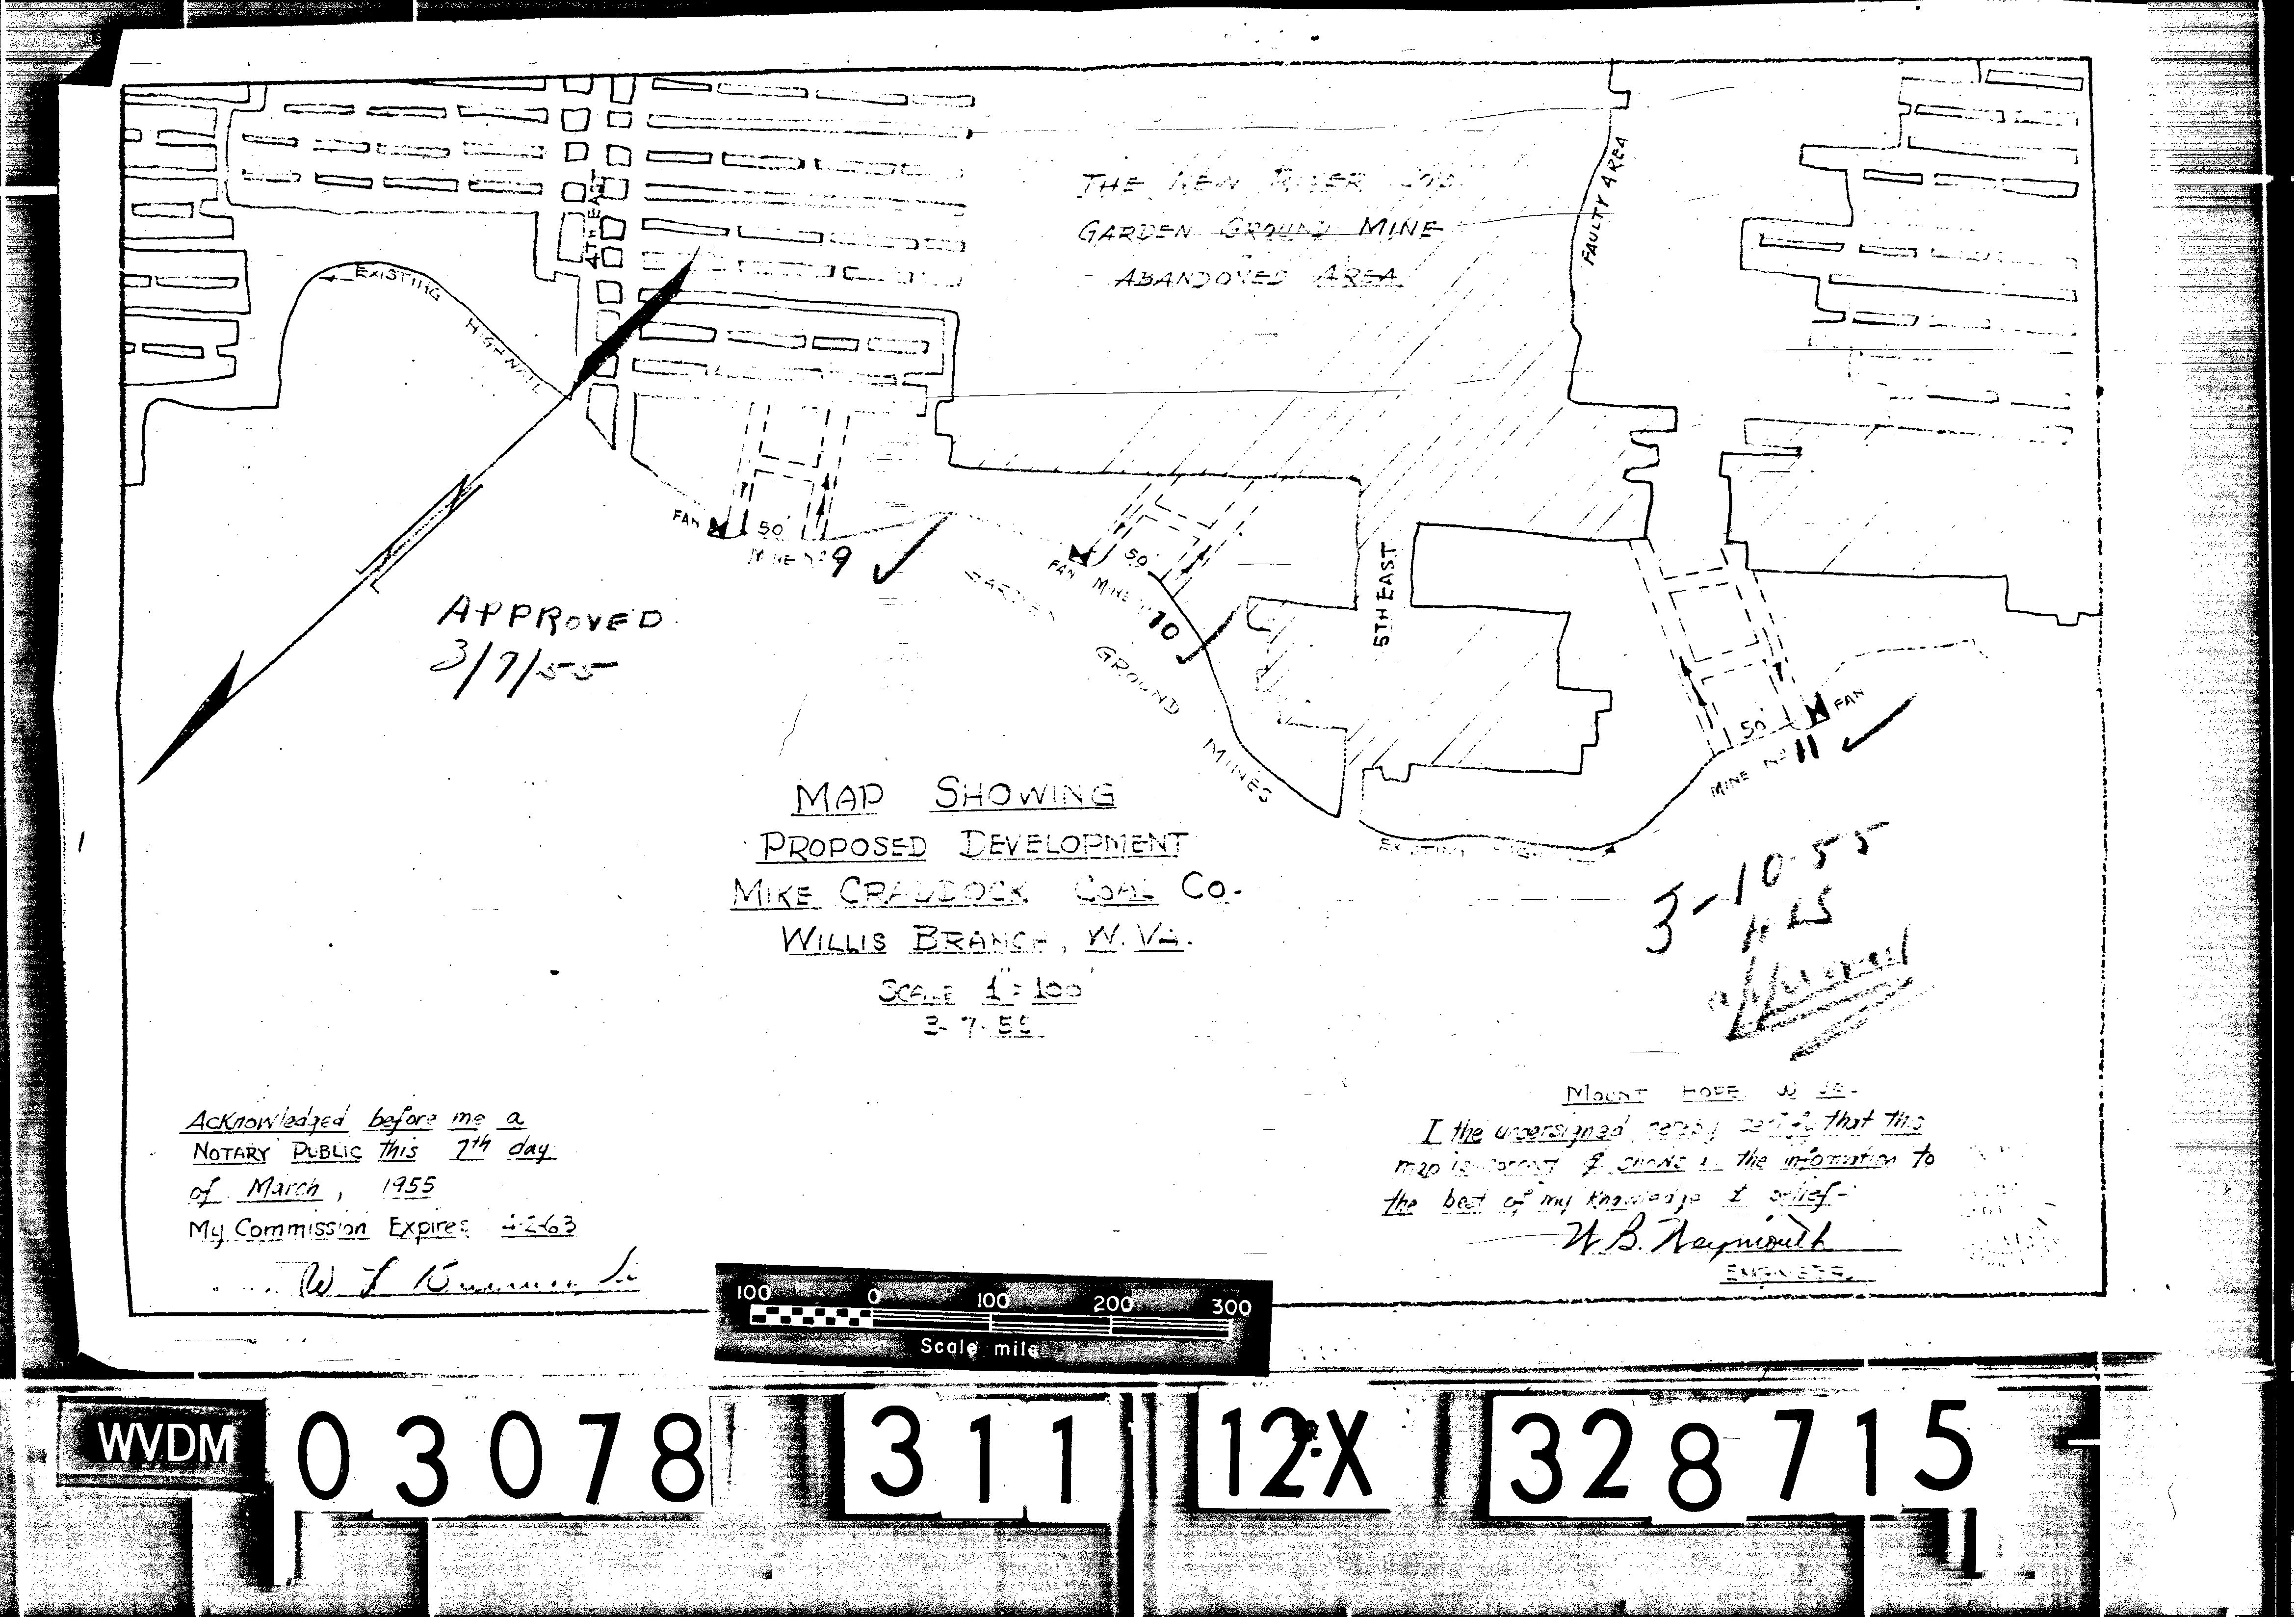 4TH EAST
THE NEW RIVER CO'S.
GARDEN GROUND MINE
ABANDONED AREA
FAULTY AREA
EXISTING
HIGHWALL
FAN
50'
MINE Nº 9
FAN
50'
MINE Nº 10
GARDEN
GROUND
MINES
5TH EAST
FAN
50'
MINE Nº 11
EXISTING HIGHWALL
APPROVED
3/7/55
MAP SHOWING
PROPOSED DEVELOPMENT
MIKE CRADDOCK COAL CO.
WILLIS BRANCH, W. VA.
SCALE 1" = 100'
3-7-55
3-10-55
approved
Acknowledged before me a
NOTARY PUBLIC this 7th day
of March, 1955
My Commission Expires 4-2-63
MOUNT HOPE W VA-
I the undersigned hereby certify that this
map is correct & shows all the information to
the best of my knowledge & belief-
W. B. Weymouth
ENGINEER
100 0 100 200 300
Scale mile
WVDM 03078 311 12X 328715